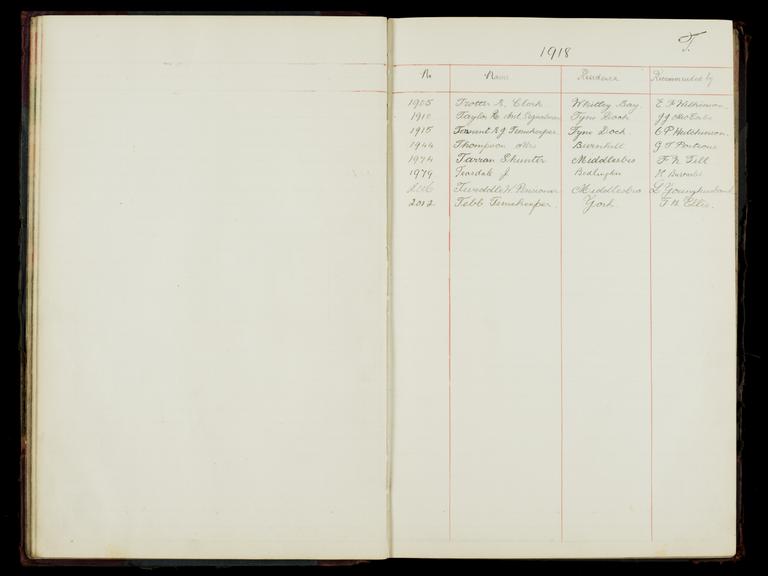 1918 T.
No Name Residence Recommended by
1905 Trotter G. Clerk Whitley Bay E F Wilkinson
1910 Taylor R Asst Signalman Tyne Dock J J
1915 Tennent R J Timekeeper Tyne Dock C P Hutchinson.
1944 Thompson Mrs Burnhill G T
1974 Tarran Shunter Middlesbro F N Tell
1979 Teasdale J Bedlington
Tweddle W. Pensioner Middlesbro L Younghusband
2012 Tebb Timekeeper. York F W Ellis.